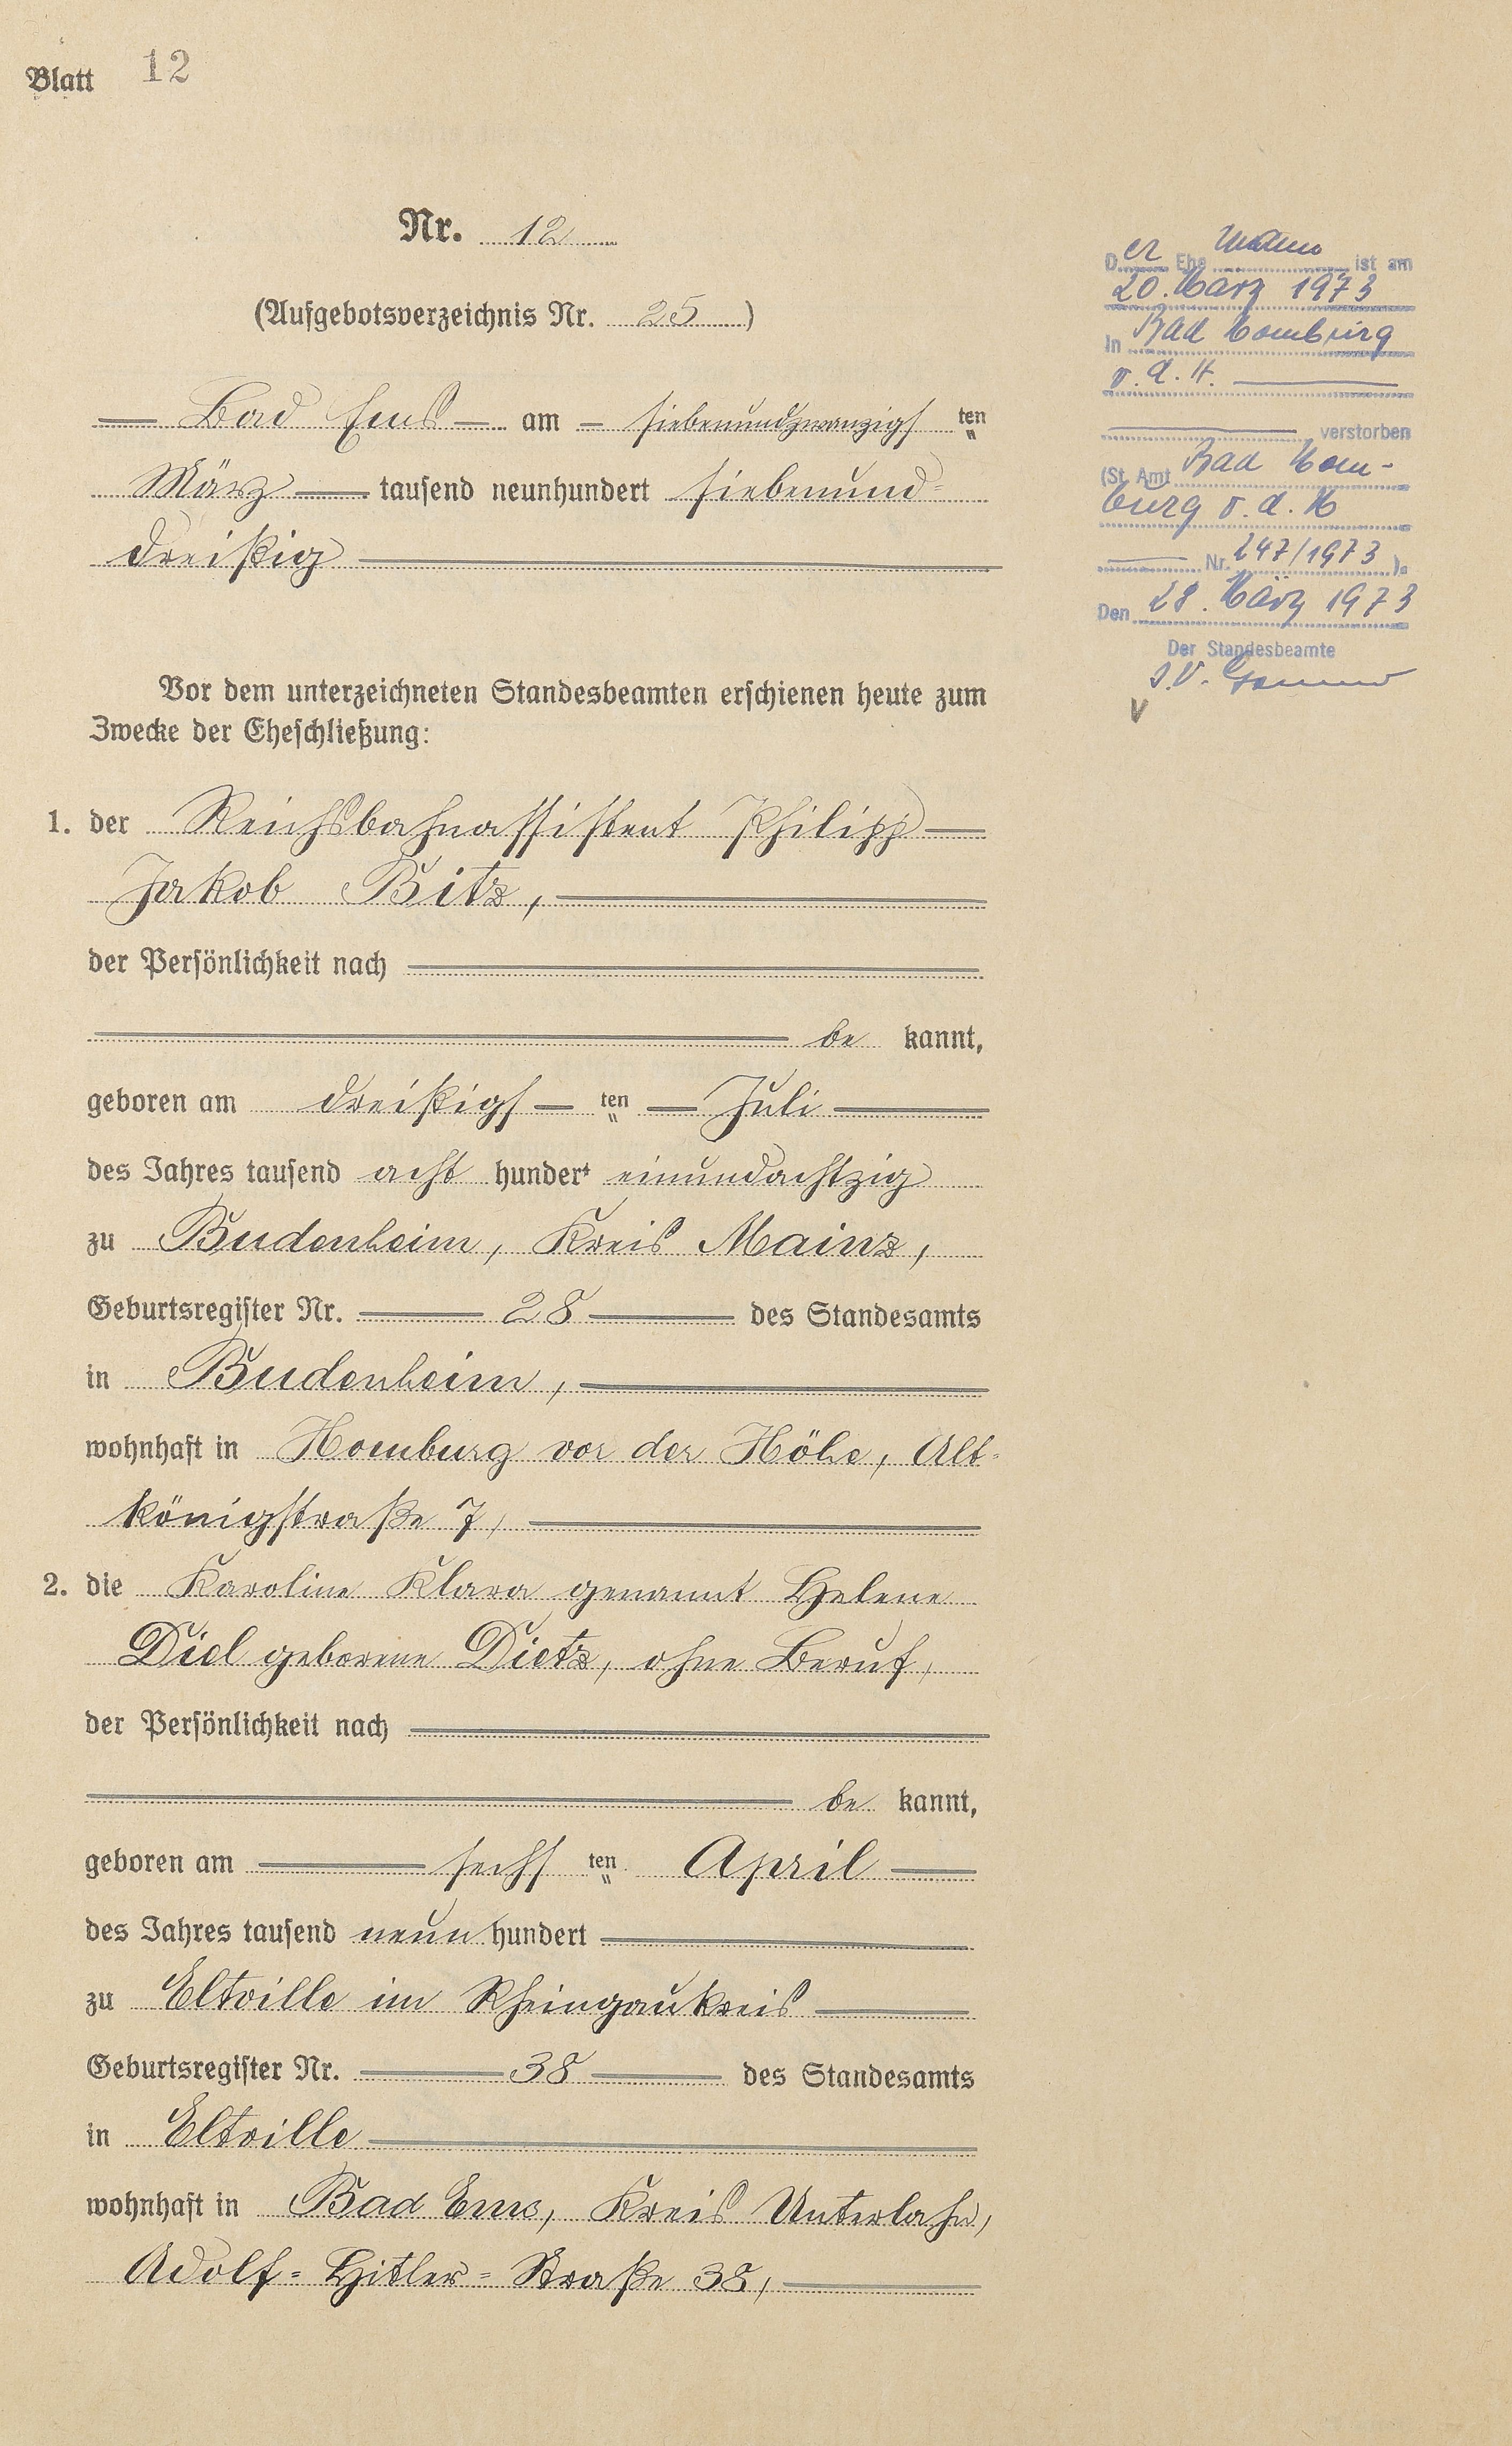 Blatt 12
Nr. 12
(Aufgebotsverzeichnis Nr. 25)
Bad Ems am siebenundzwanzigsten
März tausend neunhundert siebenund-
dreißig
Vor dem unterzeichneten Standesbeamten erschienen heute zum
Zwecke der Eheschließung:
1. der Reichsbahnassistent Philipp
Jakob Bitz,
der Persönlichkeit nach
be kannt,
geboren am dreißigsten Juli
des Jahres tausend acht hundert einundachtzig
zu Budenheim, Kreis Mainz,
Geburtsregister Nr. 28 des Standesamts
in Budenheim,
wohnhaft in Homburg vor der Höhe, Alt-
königstraße 7,
2. die Karoline Klara genannt Helene
Diel geborene Dietz, ohne Beruf,
der Persönlichkeit nach
be kannt,
geboren am sechsten April
des Jahres tausend neun hundert
zu Eltville im Rheingaukreis
Geburtsregister Nr. 38 des Standesamts
in Eltville
wohnhaft in Bad Ems, Kreis Unterlahn,
Adolf-Hitler-Straße 38,
Der Ehemann ist am
20. März 1973
in Bad Homburg
v. d. H.
verstorben
(St. Amt Bad Hom-
burg v. d. H
Nr. 247/1973).
Den 28. März 1973
Der Standesbeamte
I.V.